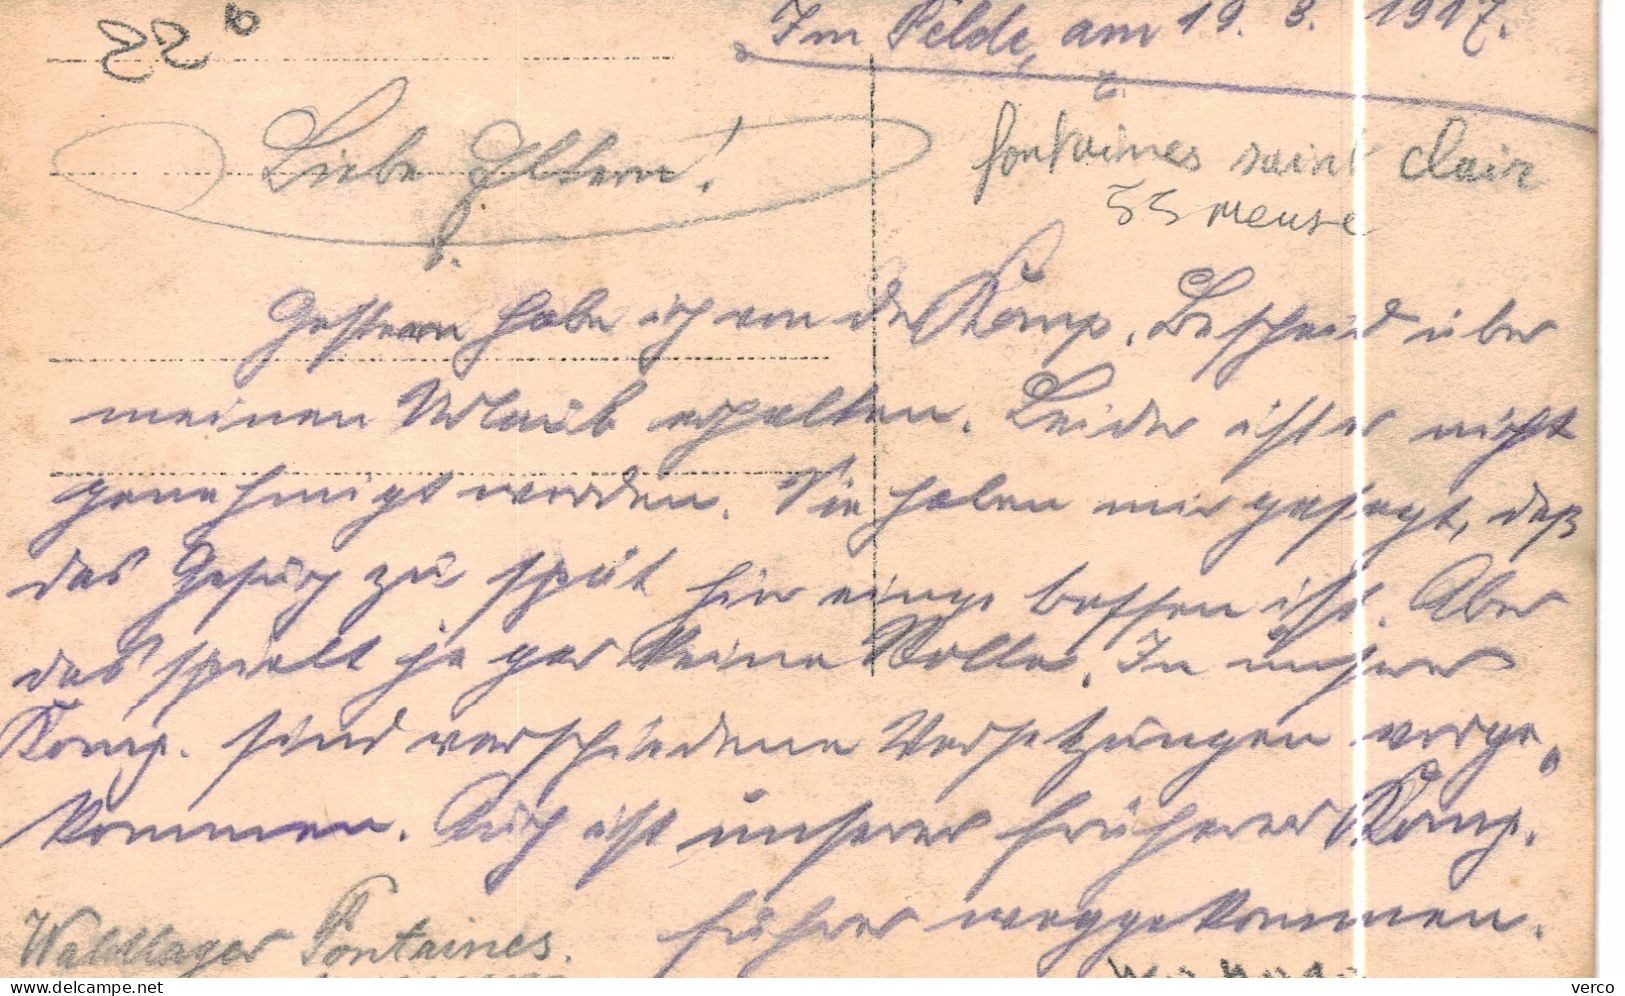 22 b
Im Felde, am 19. 3. 1917.
Liebe Eltern!
fontaines saint clair
55 Meuse
Gestern habe ich von der Komp. Bescheid über
meinen Urlaub erhalten. Leider ist er nicht
genehmigt worden. Sie haben mir gesagt, daß
das Gesuch zu spät hier eingetroffen ist. Aber
das spielt ja gar keine Rolle. In unserer
Komp. sind verschiedene Versetzungen vorge-
kommen. Auch ist unserer früherer Komp.
führer weggekommen.
Waldlager Fontaines.
delcampe.net
verco